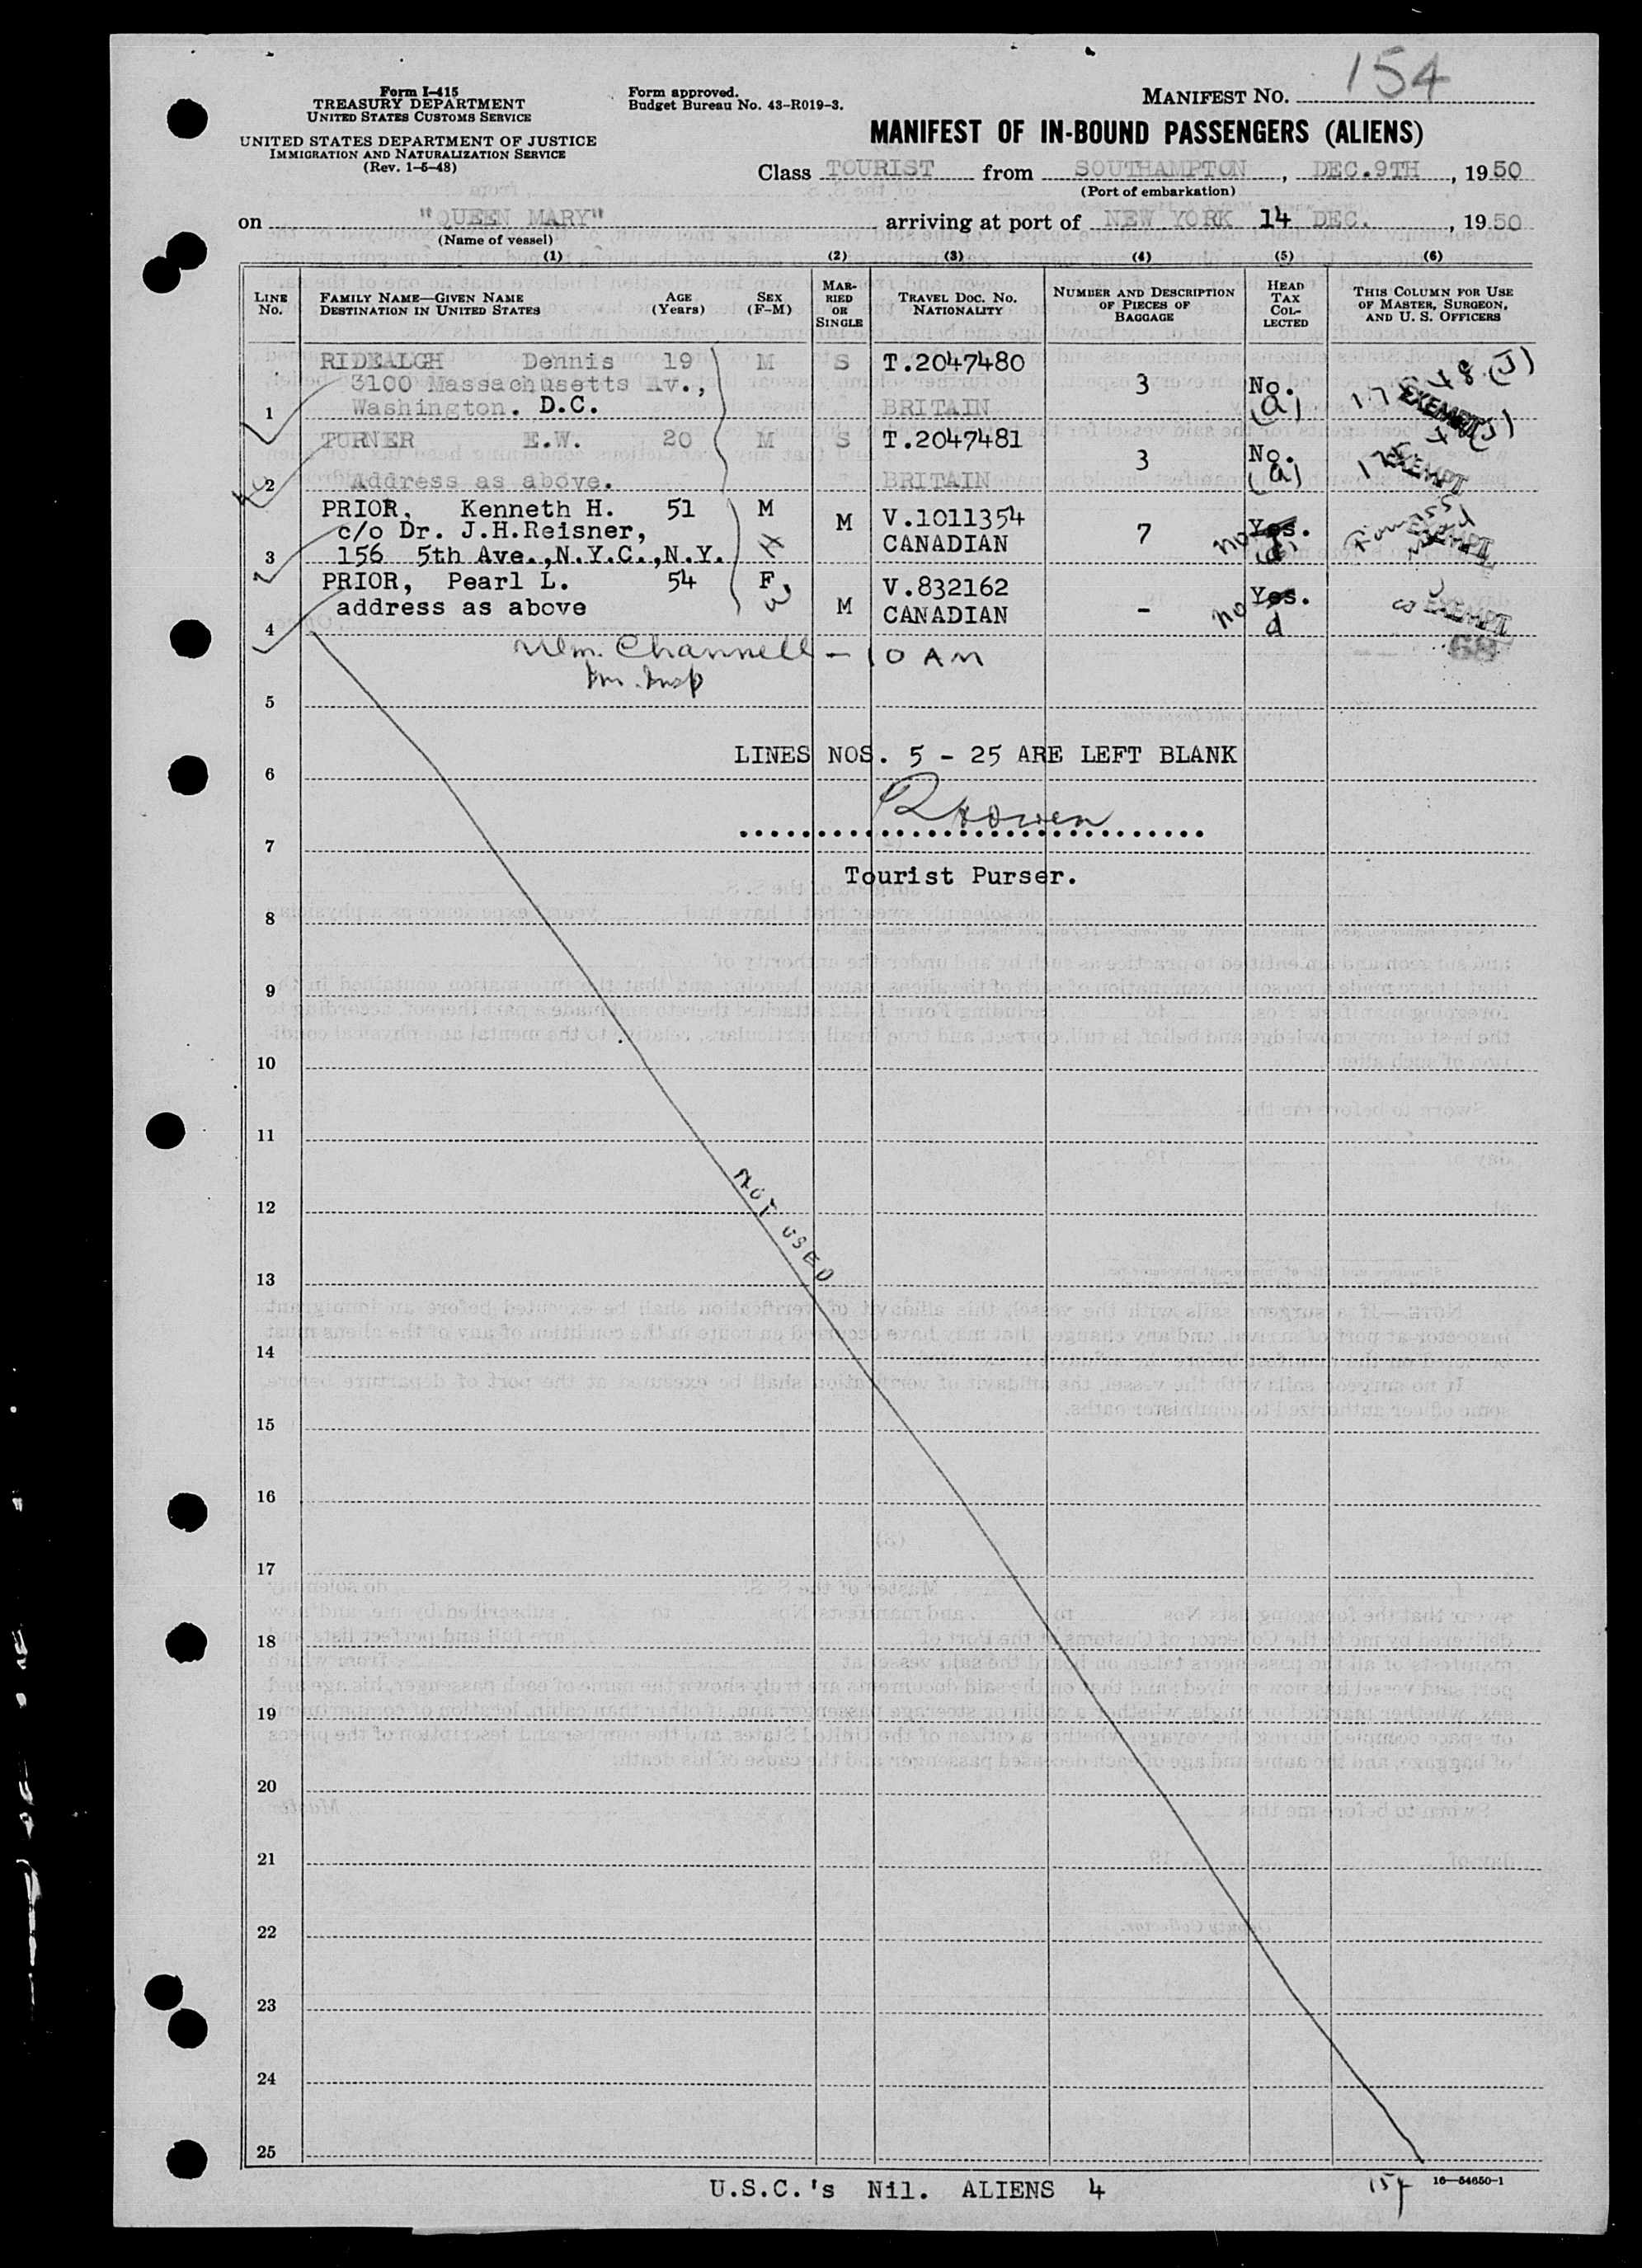 154
Form I-415
TREASURY DEPARTMENT
UNITED STATES CUSTOMS SERVICE
UNITED STATES DEPARTMENT OF JUSTICE
IMMIGRATION AND NATURALIZATION SERVICE
(Rev. 1-5-48)
Form approved.
Budget Bureau No. 43-R019-3.
MANIFEST NO.
MANIFEST OF IN-BOUND PASSENGERS (ALIENS)
Class TOURIST from SOUTHAMPTON, DEC.9TH, 1950
(Port of embarkation)
on "QUEEN MARY" arriving at port of NEW YORK 14 DEC., 1950
(Name of vessel)
(1) (2) (3) (4) (5) (6)
LINE NO.
FAMILY NAME—GIVEN NAME
DESTINATION IN UNITED STATES
AGE
(Years)
SEX
(F-M)
MARRIED OR SINGLE
TRAVEL DOC. NO.
NATIONALITY
NUMBER AND DESCRIPTION
OF PIECES OF
BAGGAGE
HEAD
TAX
COLLECTED
THIS COLUMN FOR USE
OF MASTER, SURGEON,
AND U. S. OFFICERS
RIDEALGH Dennis 19 M S T.2047480
3100 Massachusetts Av., 3 No.
1 Washington. D.C. BRITAIN (a) EXEMPT (J)
TURNER E.W. 20 M S T.2047481
3 No.
2 Address as above. BRITAIN (a) EXEMPT (J)
PRIOR, Kenneth H. 51 M M V.1011354
c/o Dr. J.H.Reisner, CANADIAN 7 no Yes.
3 156 5th Ave.,N.Y.C.,N.Y. H d EXEMPT
PRIOR, Pearl L. 54 F. V.832162 no Yes.
address as above W M CANADIAN - d EXEMPT
4
68
Wm. Channell - 10 AM
Im. Insp
5
LINES NOS. 5 - 25 ARE LEFT BLANK
6
7
Tourist Purser.
8
9
10
11
NOT USED
12
13
14
15
16
17
18
19
20
21
22
23
24
25
U.S.C.'s Nil. ALIENS 4
154
16—54650-1